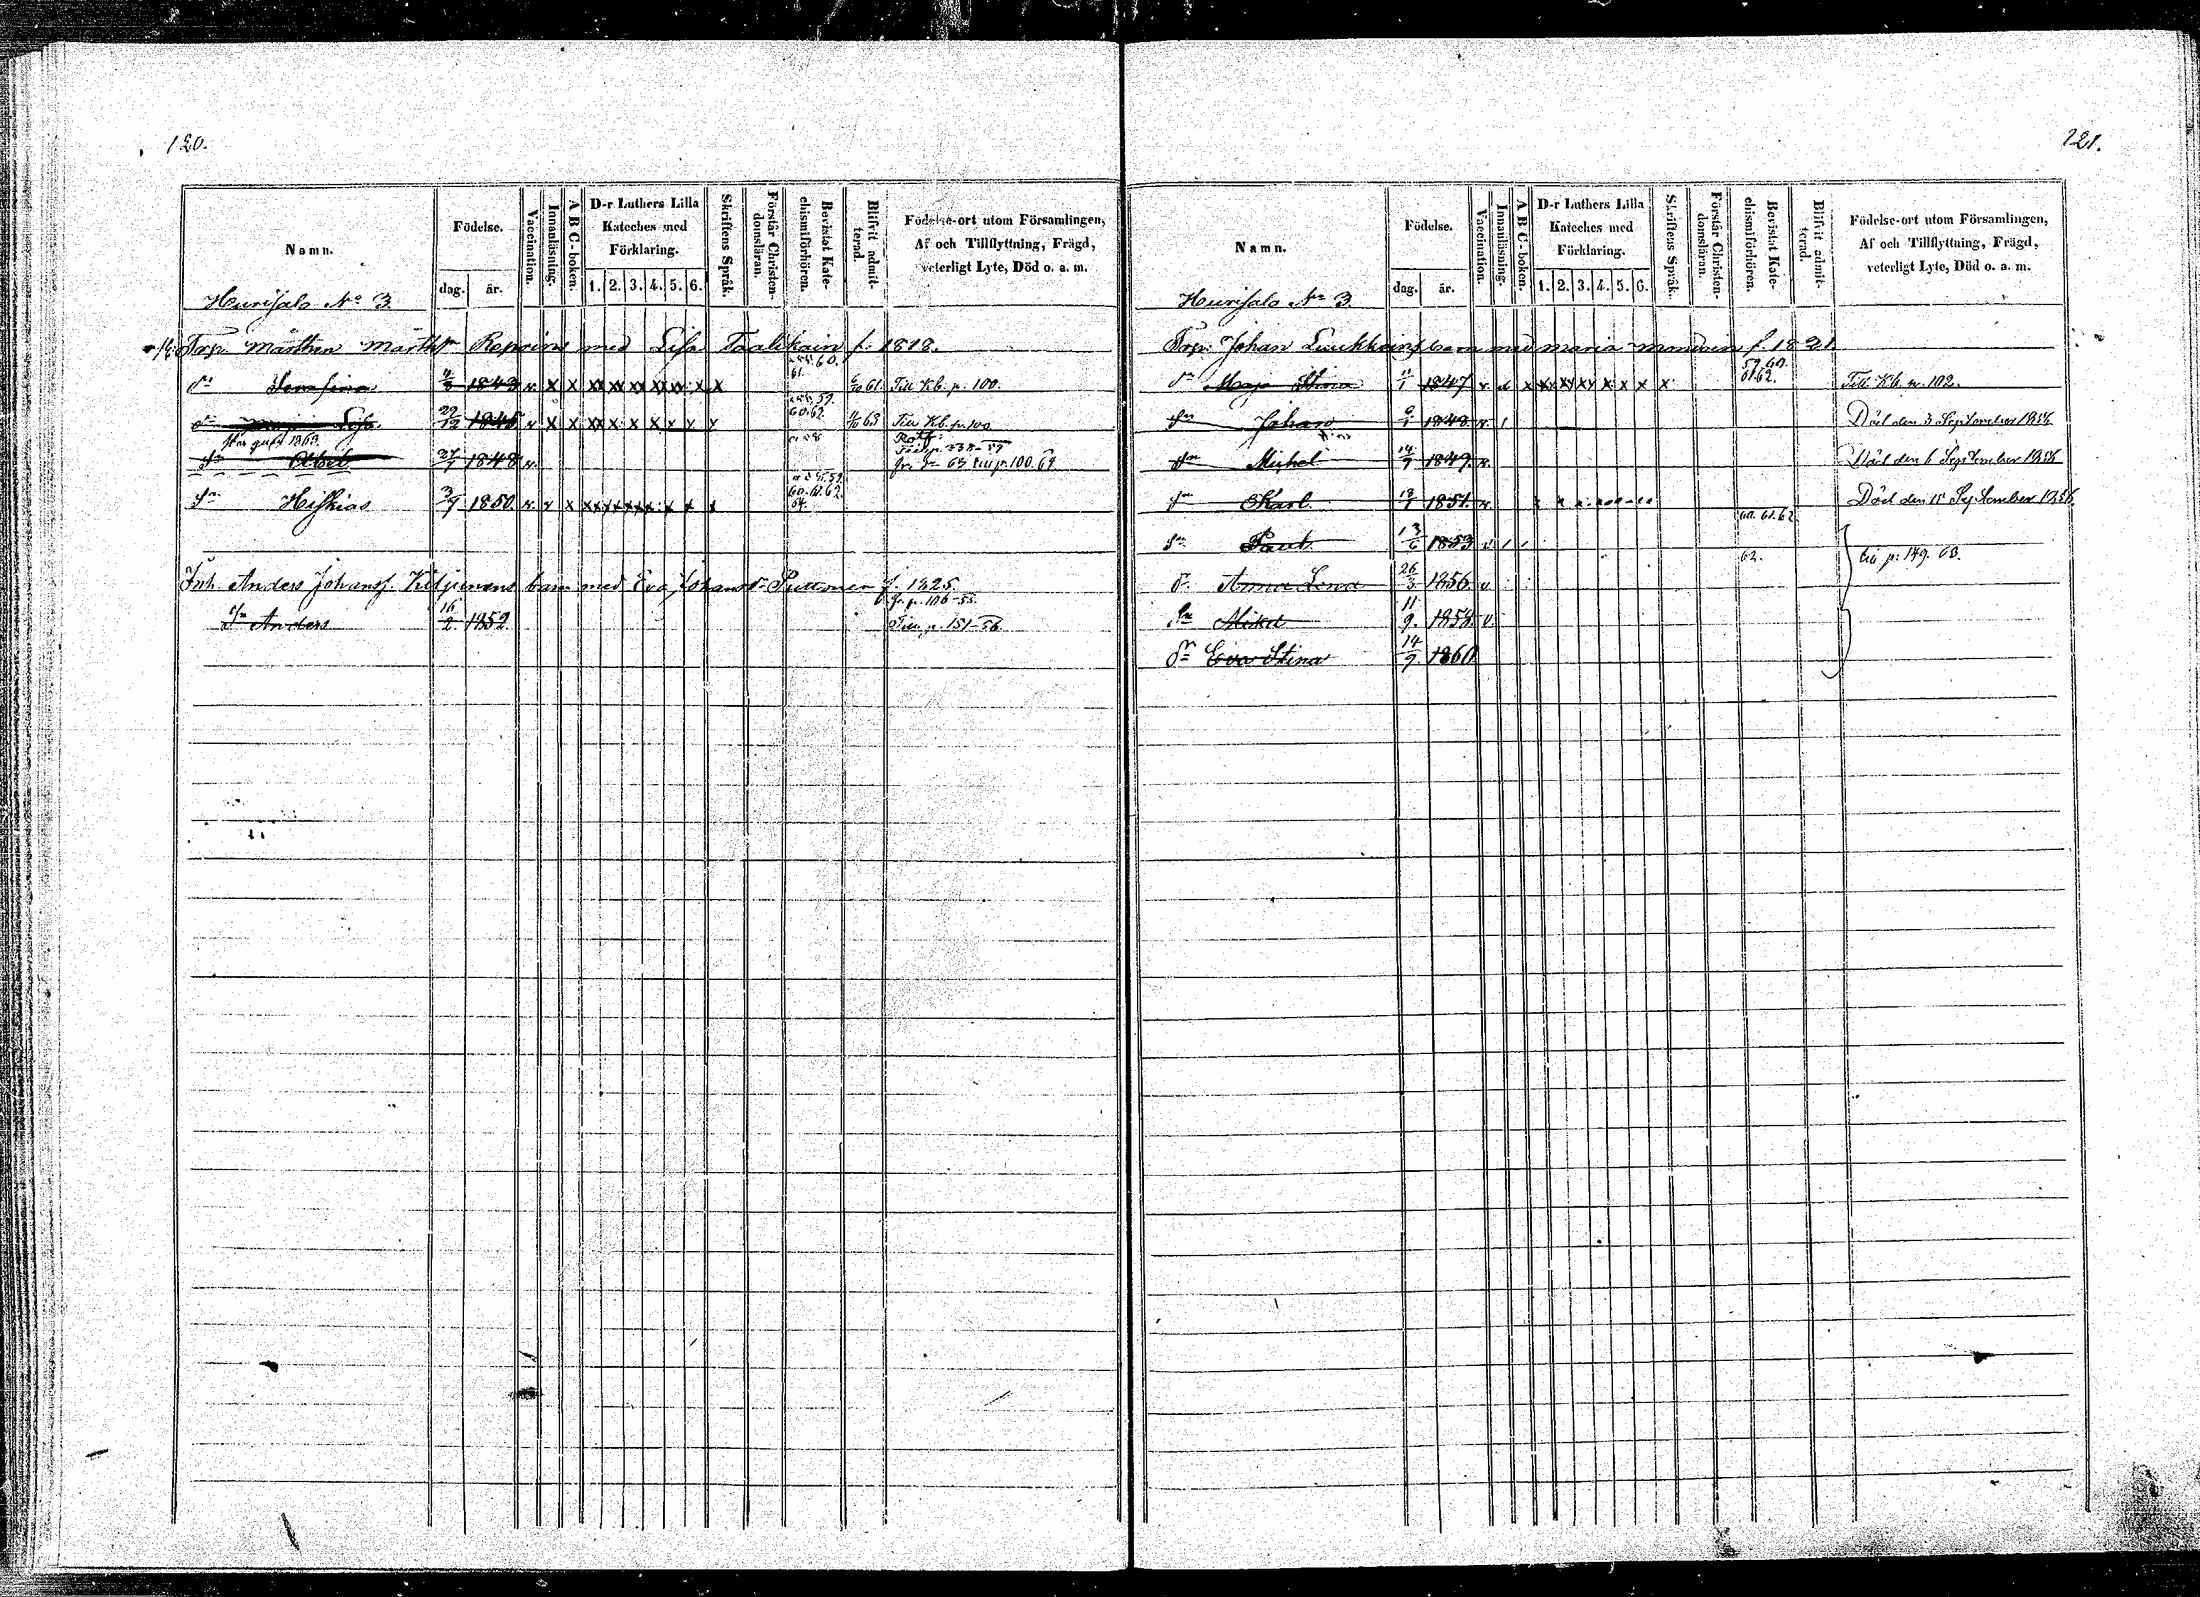 120.
Namn.
Födelse.
dag.
år.
Vaccination.
Innanläsning.
A B C-boken.
D-r Luthers Lilla
Kateches med
Förklaring.
1. 2. 3. 4. 5. 6.
Skriftens Språk.
Förstår Christen-
domsläran.
Bevistat Kate-
chismiförhören.
Blifvit admit-
terad.
Födelse-ort utom Församlingen,
Af och Tillflyttning, Frägd,
veterligt Lyte, Död o. a. m.
Hurisalo No 3.
Trp. Mårthen Mårthsr Repoins med Lisa Taalikain f. 1818.
dr Serafina 1843 x x xx xx xx xx xx x x 60. 61. 61 Till Kb. p. 100.
dr Lisa 22/12 1845 v x x xx x x x x x x 59. 60. 62. 63 Till Kb. p. 100
Sn Abel 27/7 1848 v.
Sn Hiskias 3/9 1850. v. v x 60. 61. 62. 64.
Inh. Anders Johanss. Kiljunens barn med Eva Johansdr Puttonen f. 1825
fr. p. 106-55.
Sn Anders 16/2 1852 Till p. 151-56
121.
Namn.
Födelse.
dag.
år.
Vaccination.
Innanläsning.
A B C-boken.
D-r Luthers Lilla
Kateches med
Förklaring.
1. 2. 3. 4. 5. 6.
Skriftens Språk.
Förstår Christen-
domsläran.
Bevistat Kate-
chismiförhören.
Blifvit admit-
terad.
Födelse-ort utom Församlingen,
Af och Tillflyttning, Frägd,
veterligt Lyte, Död o. a. m.
Hurisalo No 3.
Trp. Johan Liukkoins barn med Maria Mononen f. 1821
dr Maja Stina 11/1 1847 59. 60. 61. 62. Till Kb. p. 102.
Sn Johan 1848. v. Död den 3 September 1856
Sn Michel 14/9 1849. v. Död den 6 September 1856
Sn Karl 18/1 1851. v. Död den 15 September 1856.
60. 61. 62
Sn Paul 13/6 1853 v
62. till p. 149. 63.
dr Anna Lena 26/3 1856. v
Sn Mikel 11/9. 1858. v
dr Eva Stina 14/9 1860